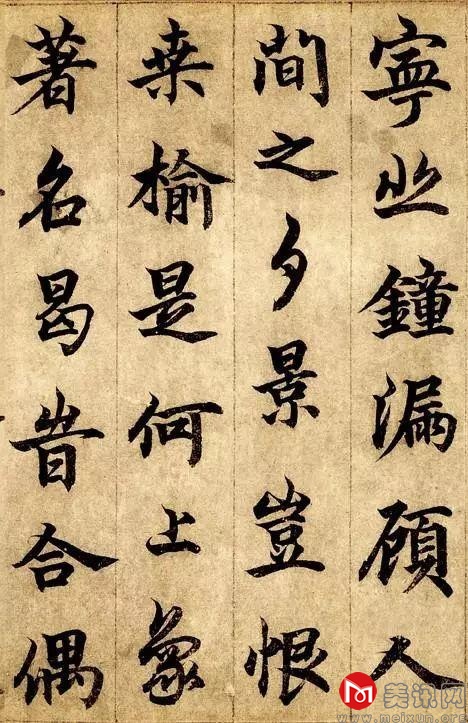 寧止鐘漏顧人
間之夕景豈恨
桒榆是何上象
著名曷旹合偶
美讯网
www.meixun.org